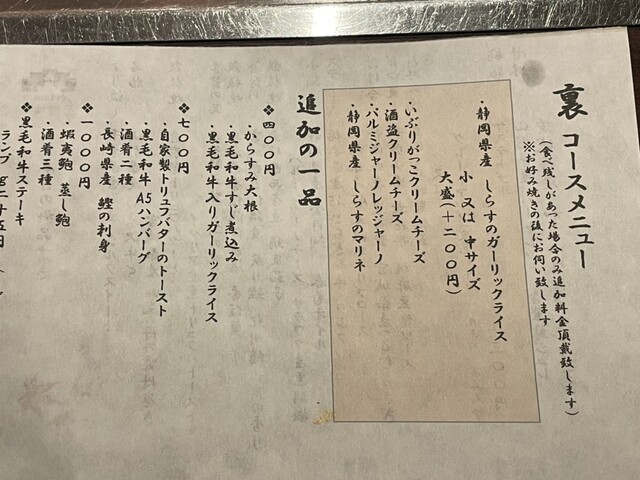 裏 コースメニュー
(食べ残しがあった場合のみ追加料金頂戴致します)
※お好み焼きの後にお伺い致します
・静岡県産 しらすのガーリックライス
小 又は 中サイズ
大盛(+二〇〇円)
・いぶりがっこクリームチーズ
・酒盗クリームチーズ
・パルミジャーノレッジャーノ
・静岡県産 しらすのマリネ
追加の一品
❖四〇〇円
・からすみ大根
・黒毛和牛すじ煮込み
・黒毛和牛入りガーリックライス
❖七〇〇円
・自家製トリュフバターのトースト
・黒毛和牛 A5ハンバーグ
・酒肴二種
・長崎県産 鰹の刺身
❖一〇〇〇円
・蝦夷鮑 蒸し鮑
・酒肴三種
❖黒毛和牛ステーキ
ランプ